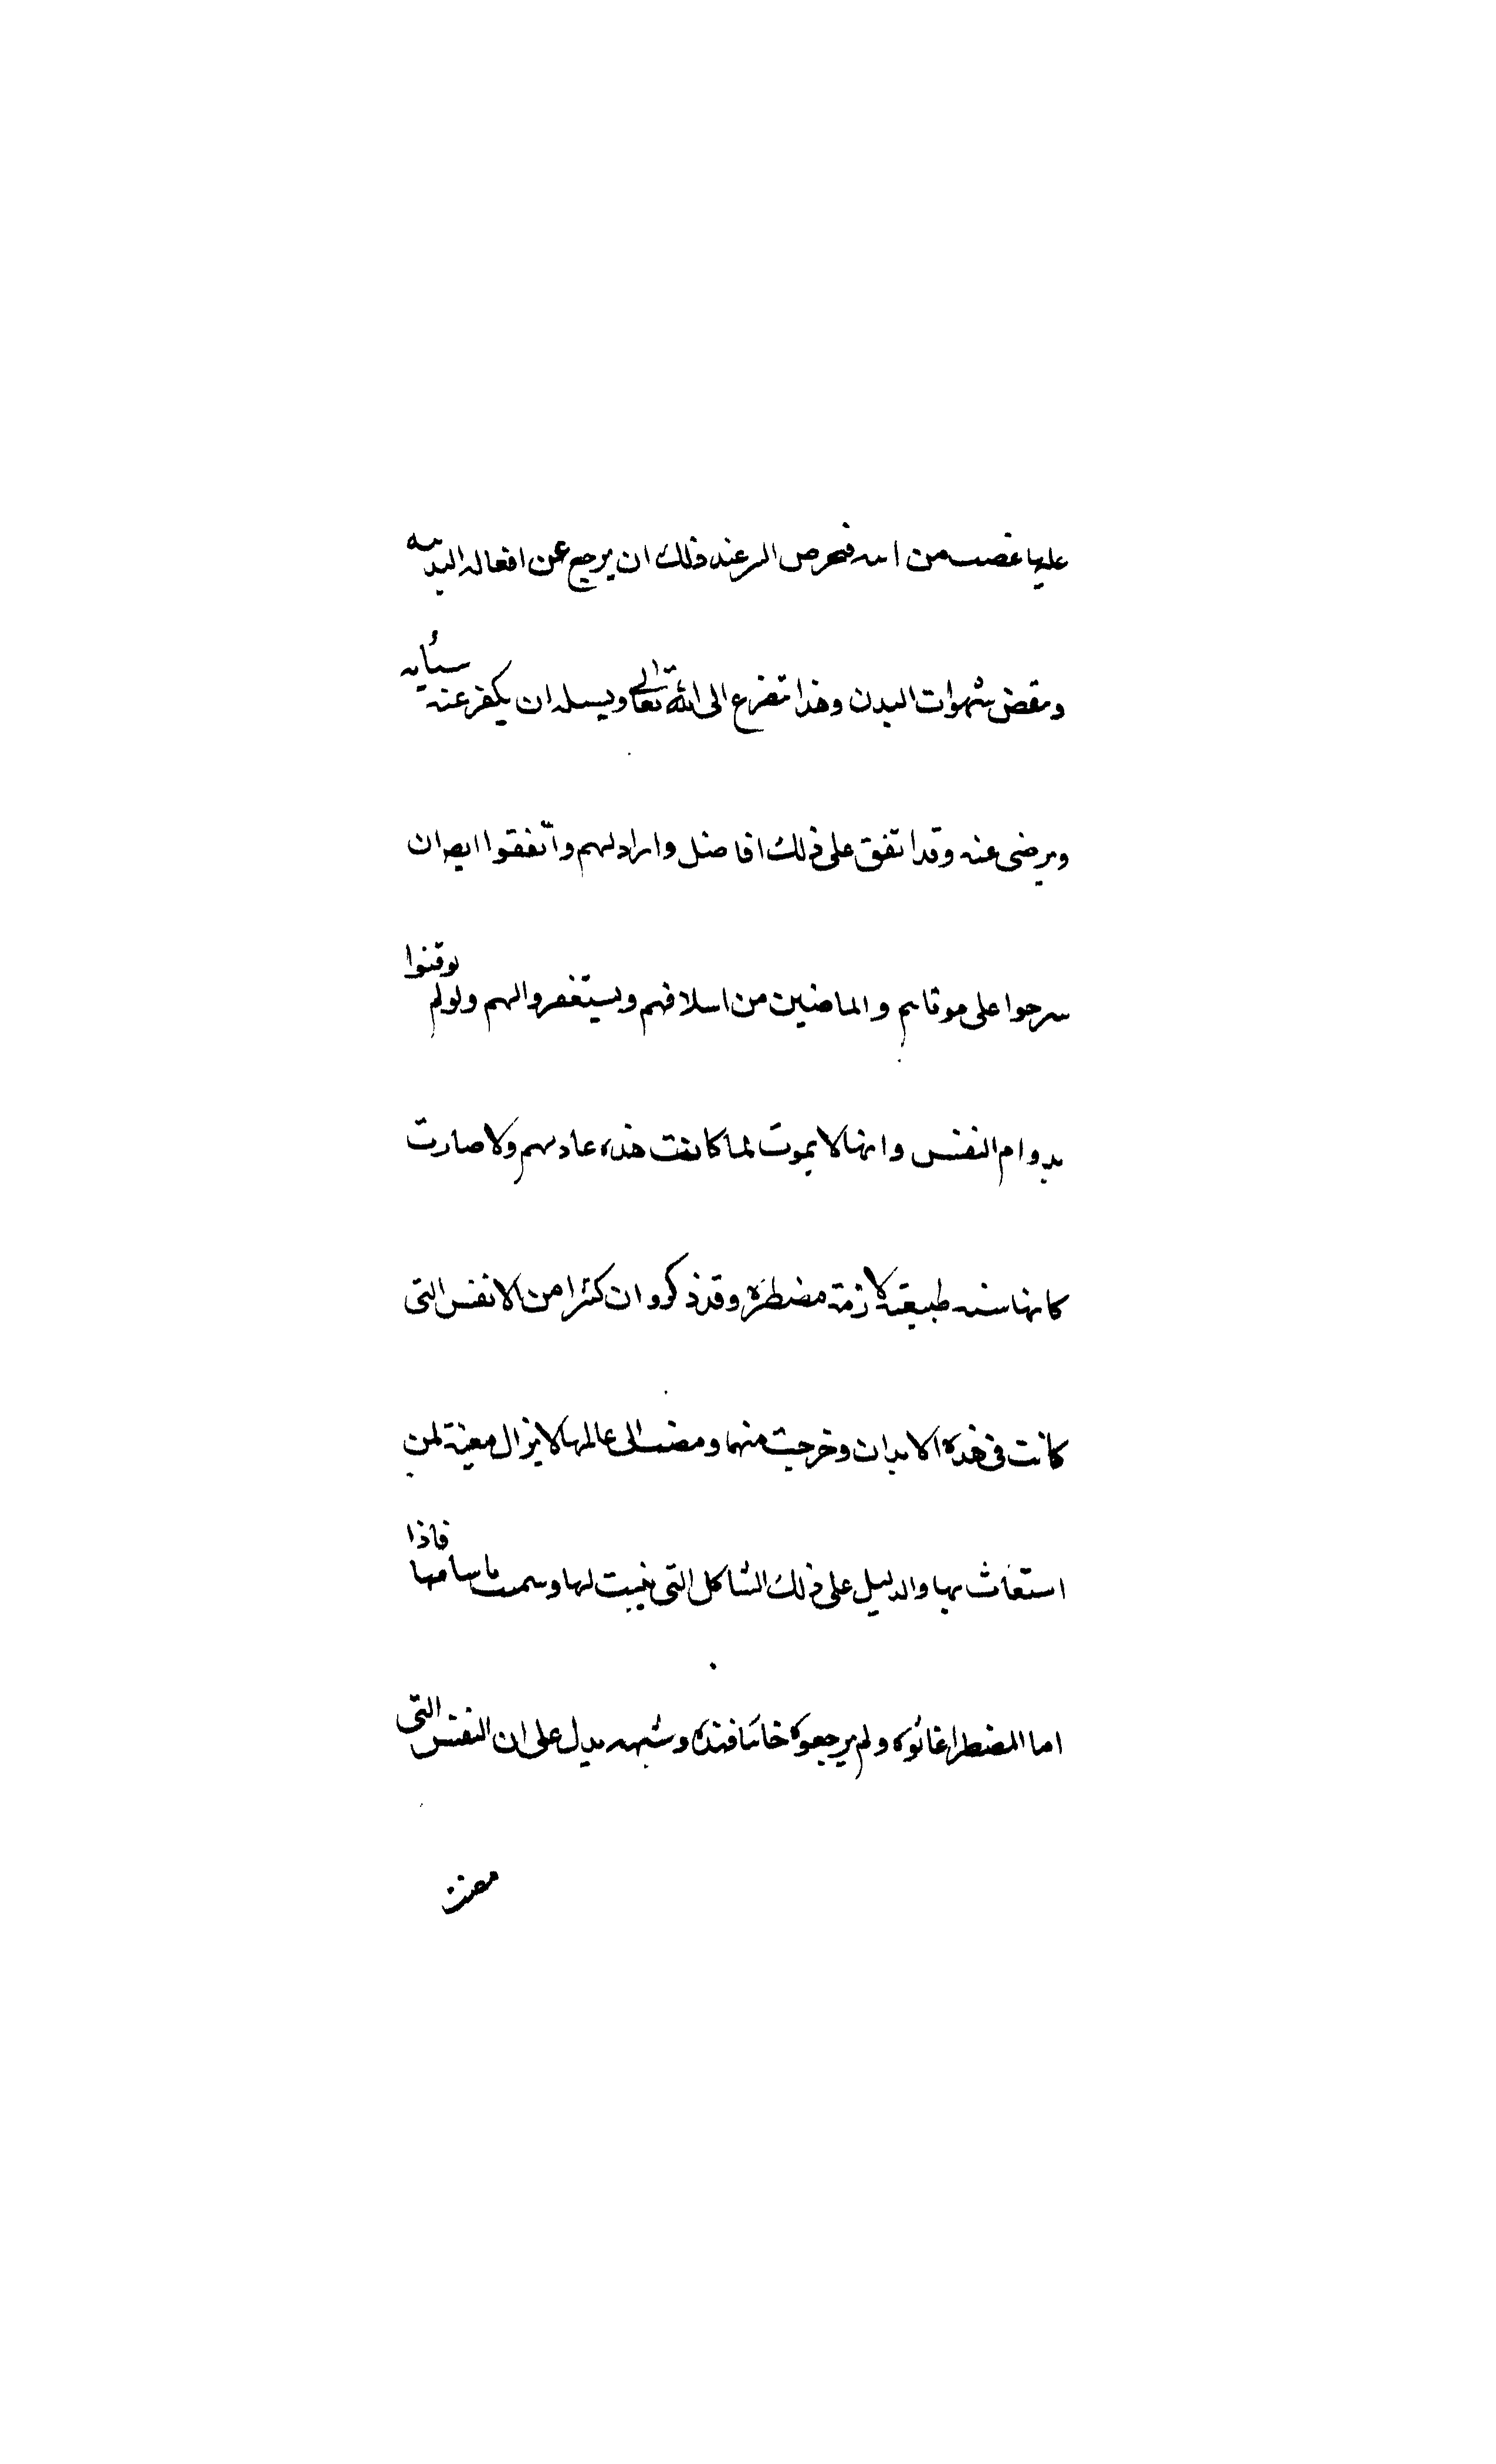 عليها غضب من الله فيحرص المر عند ذلك ان يرجع عن افعاله البدنيه
ومقض شهوات البدن وهذا متضرع الى الله تعالى ويسله ان يكفر عنه سيئاته
ويرضى عنه وقد اتفق على ذلك افاضل واراذلهم واتفقوا ايض ان
يترحموا على موتاهم والماضين من اسلافهم ويستغفروا لهم ولو لم يوقنوا
بدوام النفس وانها لا يموت لما كانت هذه عادتهم ولا صارت
كانها سنه طبيعته لازمة مضطره وقد ذكروا ان كثيرا من الانفس التى
كانت فى هذه الابدان وخرجت منها ومضت الى عالمها لا يزال معينة لمن
استغاث بها والدليل على ذلك الشاكل التى بنيت لها وسمت باسامها فاذا
اما المضطر اغاثوه ولم يرجعوه خائبا فهذه وشبهه يدل على ان النفس التى
مضت